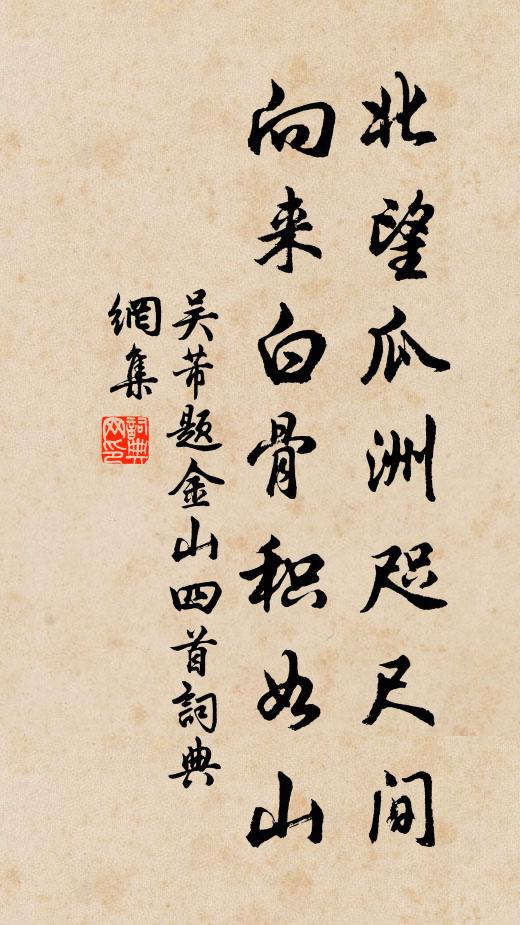 北望瓜洲咫尺间
向来白骨积如山
吴芾题金山四首詞典
網集
詞典网印